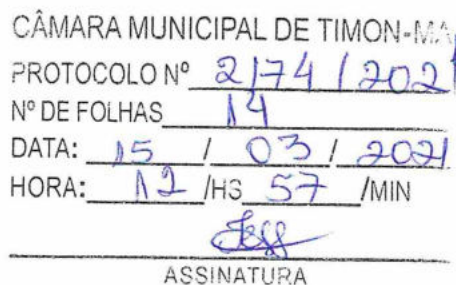 CÂMARA MUNICIPAL DE TIMON-MA
PROTOCOLO Nº 2174 / 2021
Nº DE FOLHAS 14
DATA: 15 / 03 / 2021
HORA: 12 /HS 57 /MIN
ASSINATURA